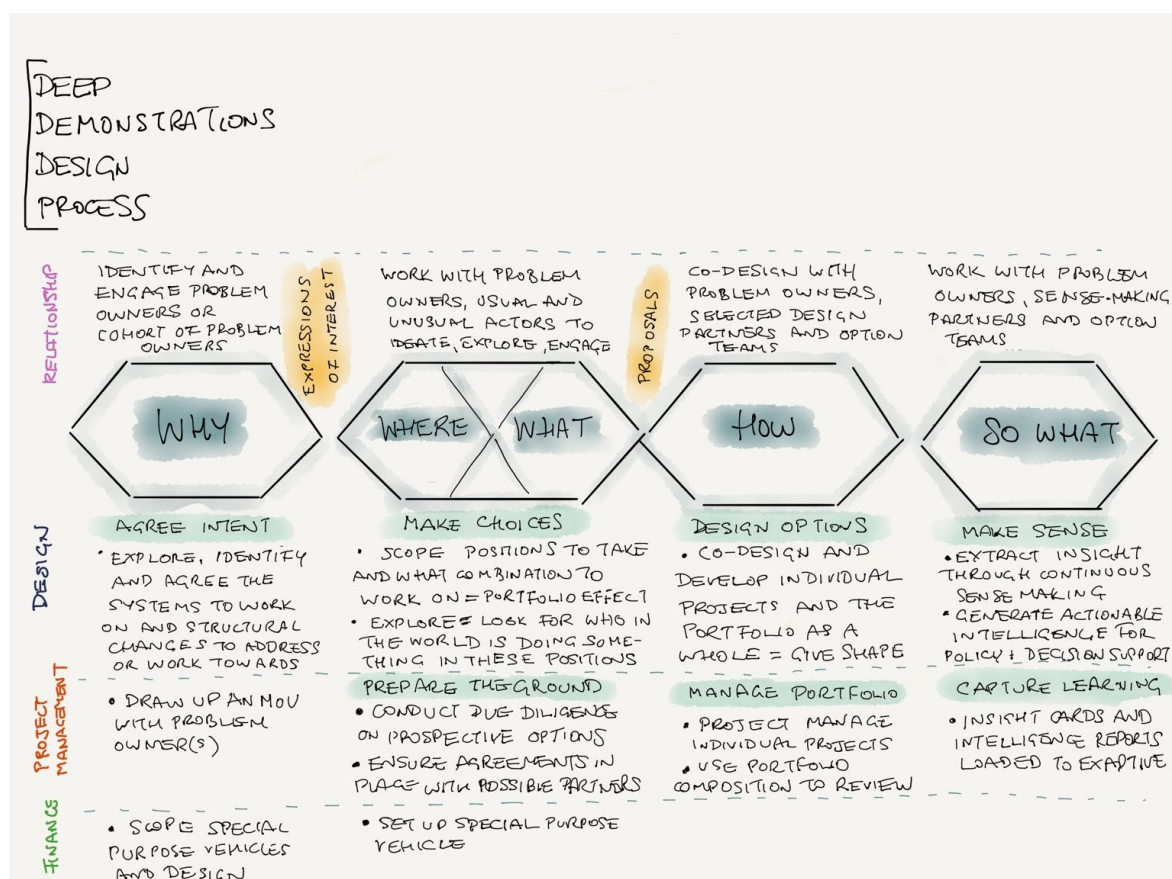 DEEP
DEMONSTRATIONS
DESIGN
PROCESS
RELATIONSHIP
IDENTIFY AND
ENGAGE PROBLEM
OWNERS OR
COHORT OF PROBLEM
OWNERS
EXPRESSIONS
OF INTEREST
WORK WITH PROBLEM
OWNERS, USUAL AND
UNUSUAL ACTORS TO
IDEATE, EXPLORE, ENGAGE
PROPOSALS
CO-DESIGN WITH
PROBLEM OWNERS,
SELECTED DESIGN
PARTNERS AND OPTION
TEAMS
WORK WITH PROBLEM
OWNERS, SENSE-MAKING
PARTNERS AND OPTION
TEAMS
WHY
WHERE
WHAT
HOW
SO WHAT
DESIGN
AGREE INTENT
• EXPLORE, IDENTIFY
AND AGREE THE
SYSTEMS TO WORK
ON AND STRUCTURAL
CHANGES TO ADDRESS
OR WORK TOWARDS
MAKE CHOICES
• SCOPE POSITIONS TO TAKE
AND WHAT COMBINATION TO
WORK ON = PORTFOLIO EFFECT
• EXPLORE = LOOK FOR WHO IN
THE WORLD IS DOING SOME-
THING IN THESE POSITIONS
DESIGN OPTIONS
• CO-DESIGN AND
DEVELOP INDIVIDUAL
PROJECTS AND THE
PORTFOLIO AS A
WHOLE = GIVE SHAPE
MAKE SENSE
• EXTRACT INSIGHT
THROUGH CONTINUOUS
SENSE MAKING
• GENERATE ACTIONABLE
INTELLIGENCE FOR
POLICY + DECISION SUPPORT
PROJECT
MANAGEMENT
• DRAW UP AN MOU
WITH PROBLEM
OWNER(S)
PREPARE THE GROUND
• CONDUCT DUE DILIGENCE
ON PROSPECTIVE OPTIONS
• ENSURE AGREEMENTS IN
PLACE WITH POSSIBLE PARTNERS
MANAGE PORTFOLIO
• PROJECT MANAGE
INDIVIDUAL PROJECTS
• USE PORTFOLIO
COMPOSITION TO REVIEW
CAPTURE LEARNING
• INSIGHT CARDS AND
INTELLIGENCE REPORTS
LOADED TO EXAPTIVE
FINANCE
• SCOPE SPECIAL
PURPOSE VEHICLES
AND DESIGN
• SET UP SPECIAL PURPOSE
VEHICLE